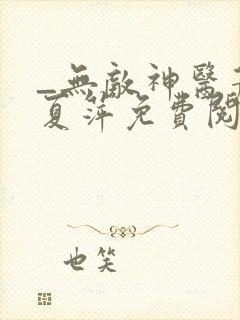 _無敵神醫
夏萍免費閱
也笑